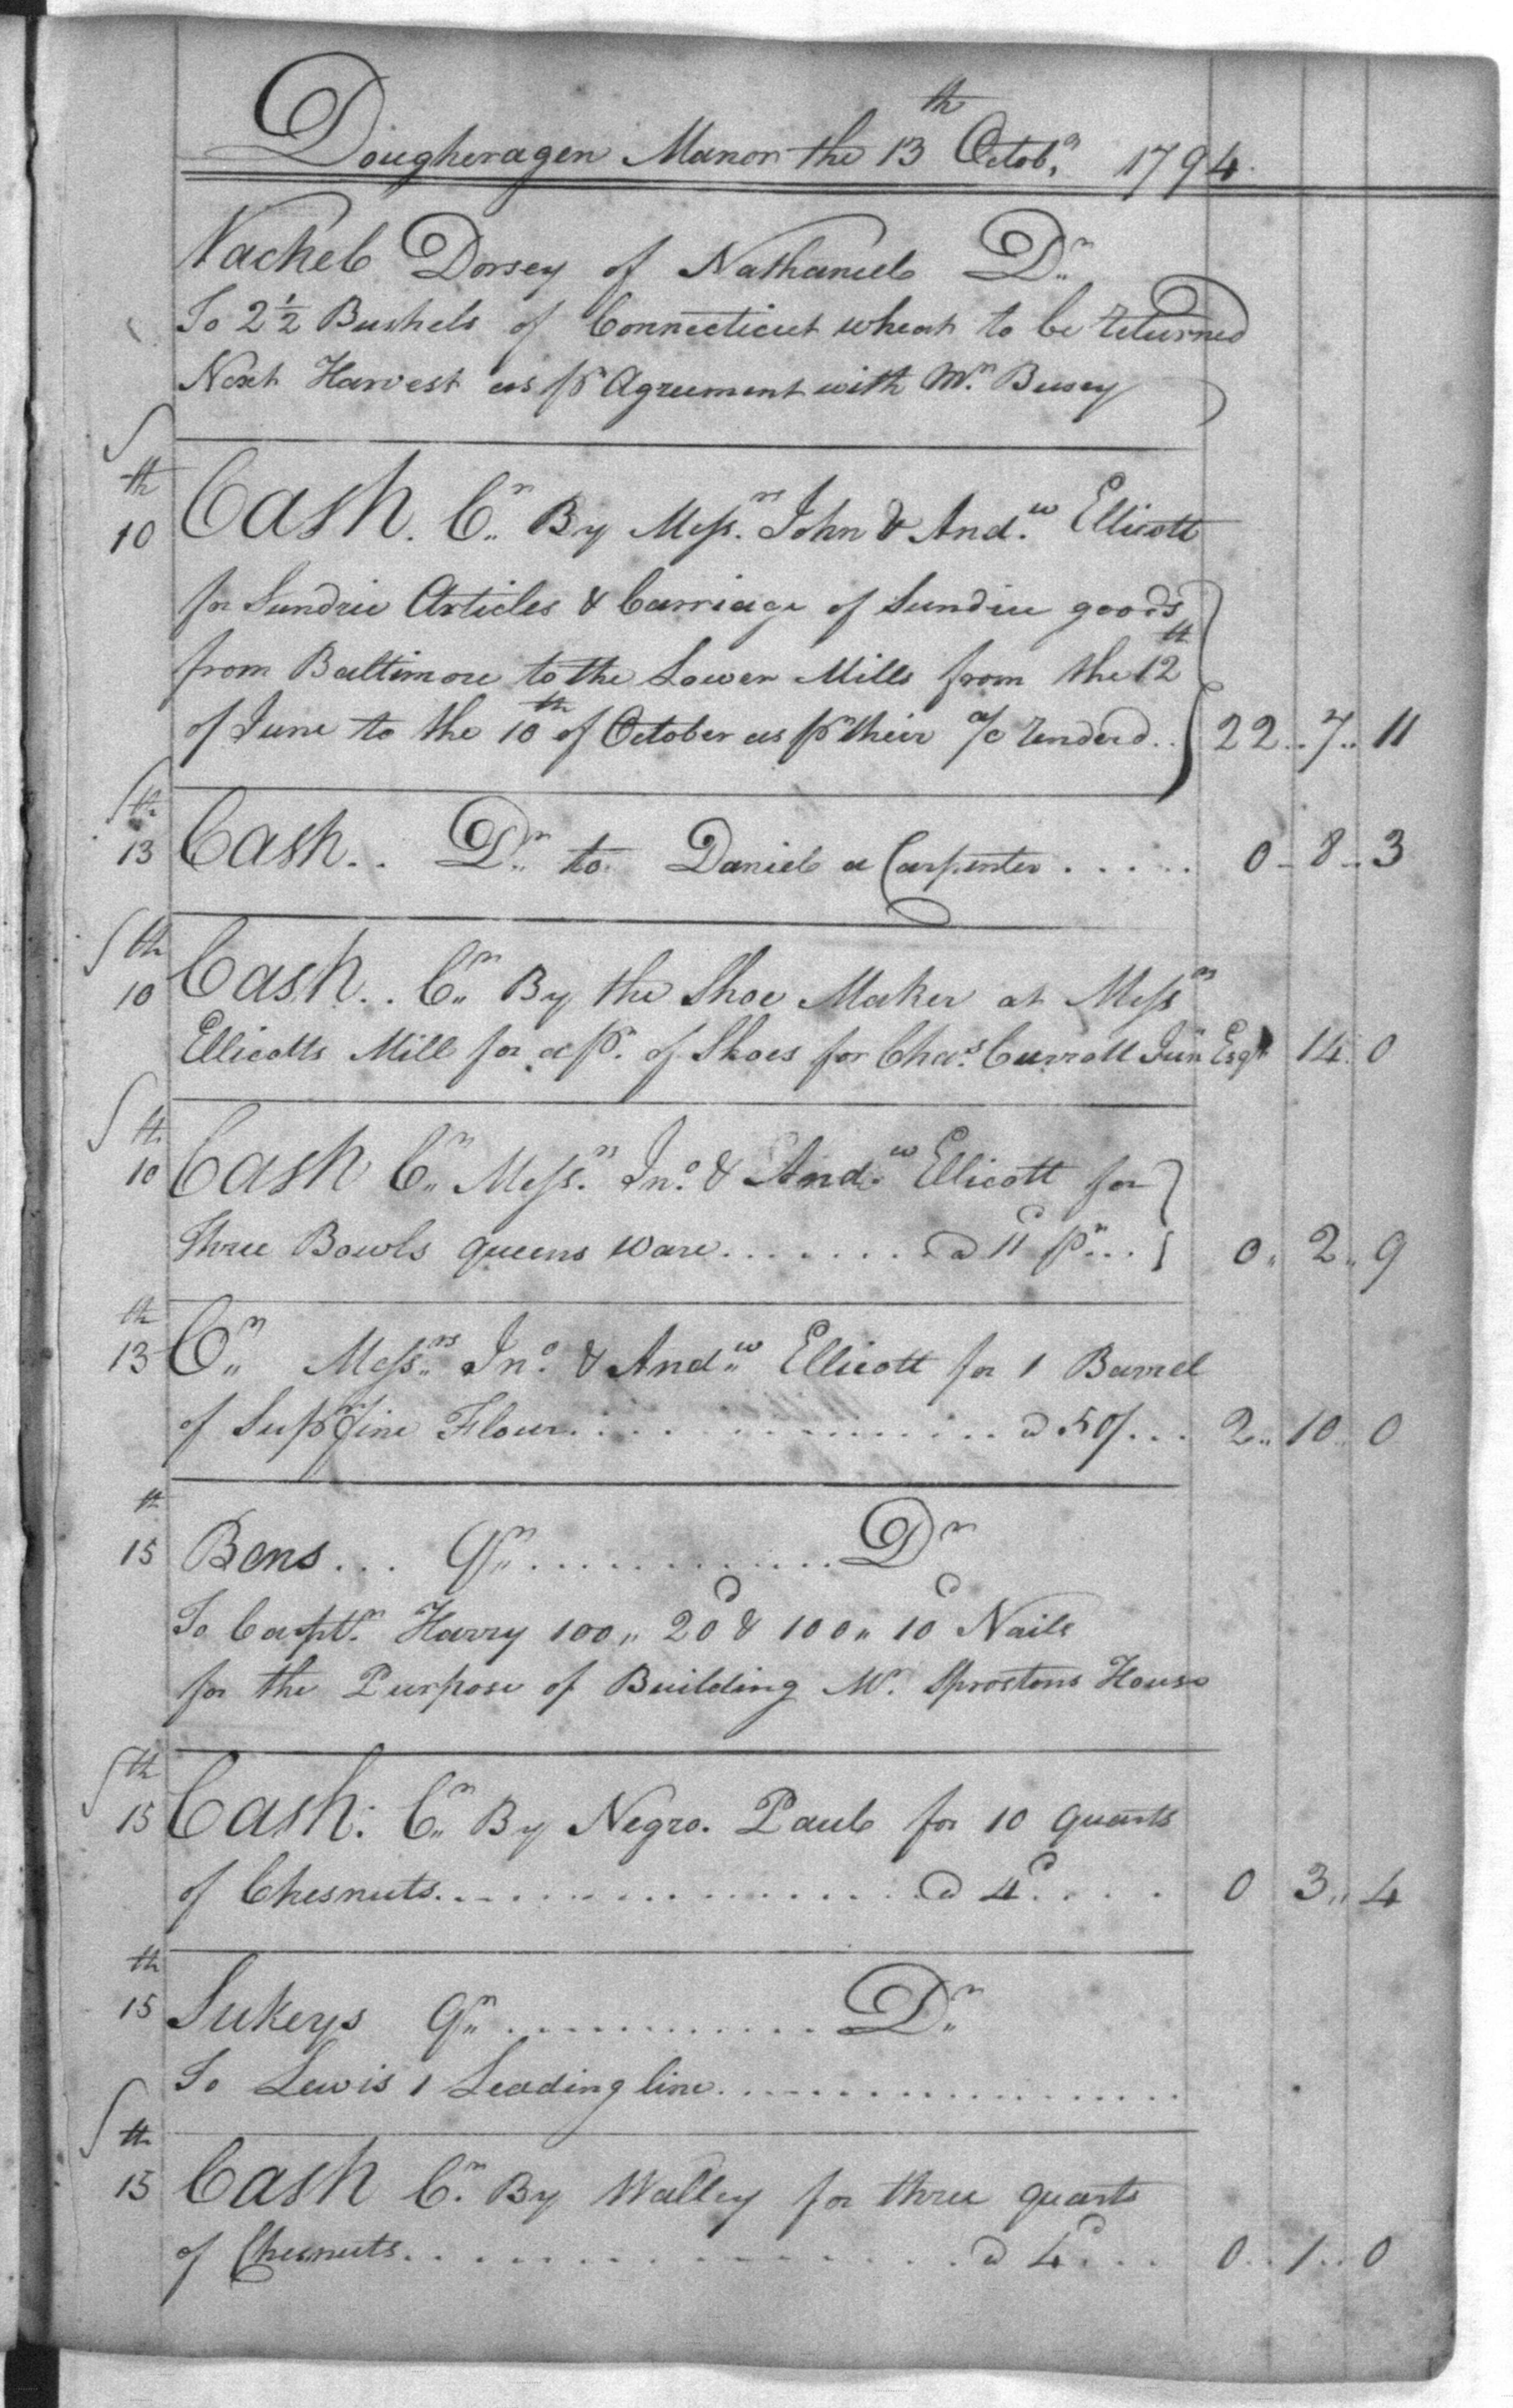 Dougheragen Manor the 13th Octobr 1794.
Nackel Dorsey of Nathaniel Dr
To 2½ Bushels of Connecticut wheat to be Returned
Next Harvest as pr Agreement with Mr. Busey
th
10 Cash. Cr. By Messrs. John & Andw. Ellicott
for Sundrie Articles & Carriage of Sundrie goods
from Baltimore to the Lower Mills from the 12th
of June to the 10th of October as pr their a/c Renderd.. 22..7..11
th
13 Cash.. Dr. to. Daniel a Carpenter...... 0-8-3
th
10 Cash.. Cr. By the Shoe Maker at Messrs
Ellicotts Mill for a pr. of Shoes for Chas. Carroll Jun Esqr 14.0
th
10 Cash Cr. Messrs. Jno. & Andw. Ellicott for
Three Bowls queens Ware........ @ 11d pr... 0.. 2..9
th
13 Cr. Messrs. Jno. & Andw. Ellicott for 1 Barrel
of Suprfine Flour................ @ 50/... 2.. 10.. 0
th
15 Bens... Qr............. Dr
To Carptr. Harry 100,, 20d & 100,, 10d Nails
for the Purpose of Building Mr. Sprostons House
th
15 Cash: Cr. By Negro. Paul for 10 quarts
of Chesnuts................ @ 4d.... 0 3,, 4
th
15 Sukeys Qr............. Dr.
To Lewis 1 Leading line..................
th
15 Cash Cr. By Walley for three quarts
of Chesnuts.................. @ 4d... 0..1..0